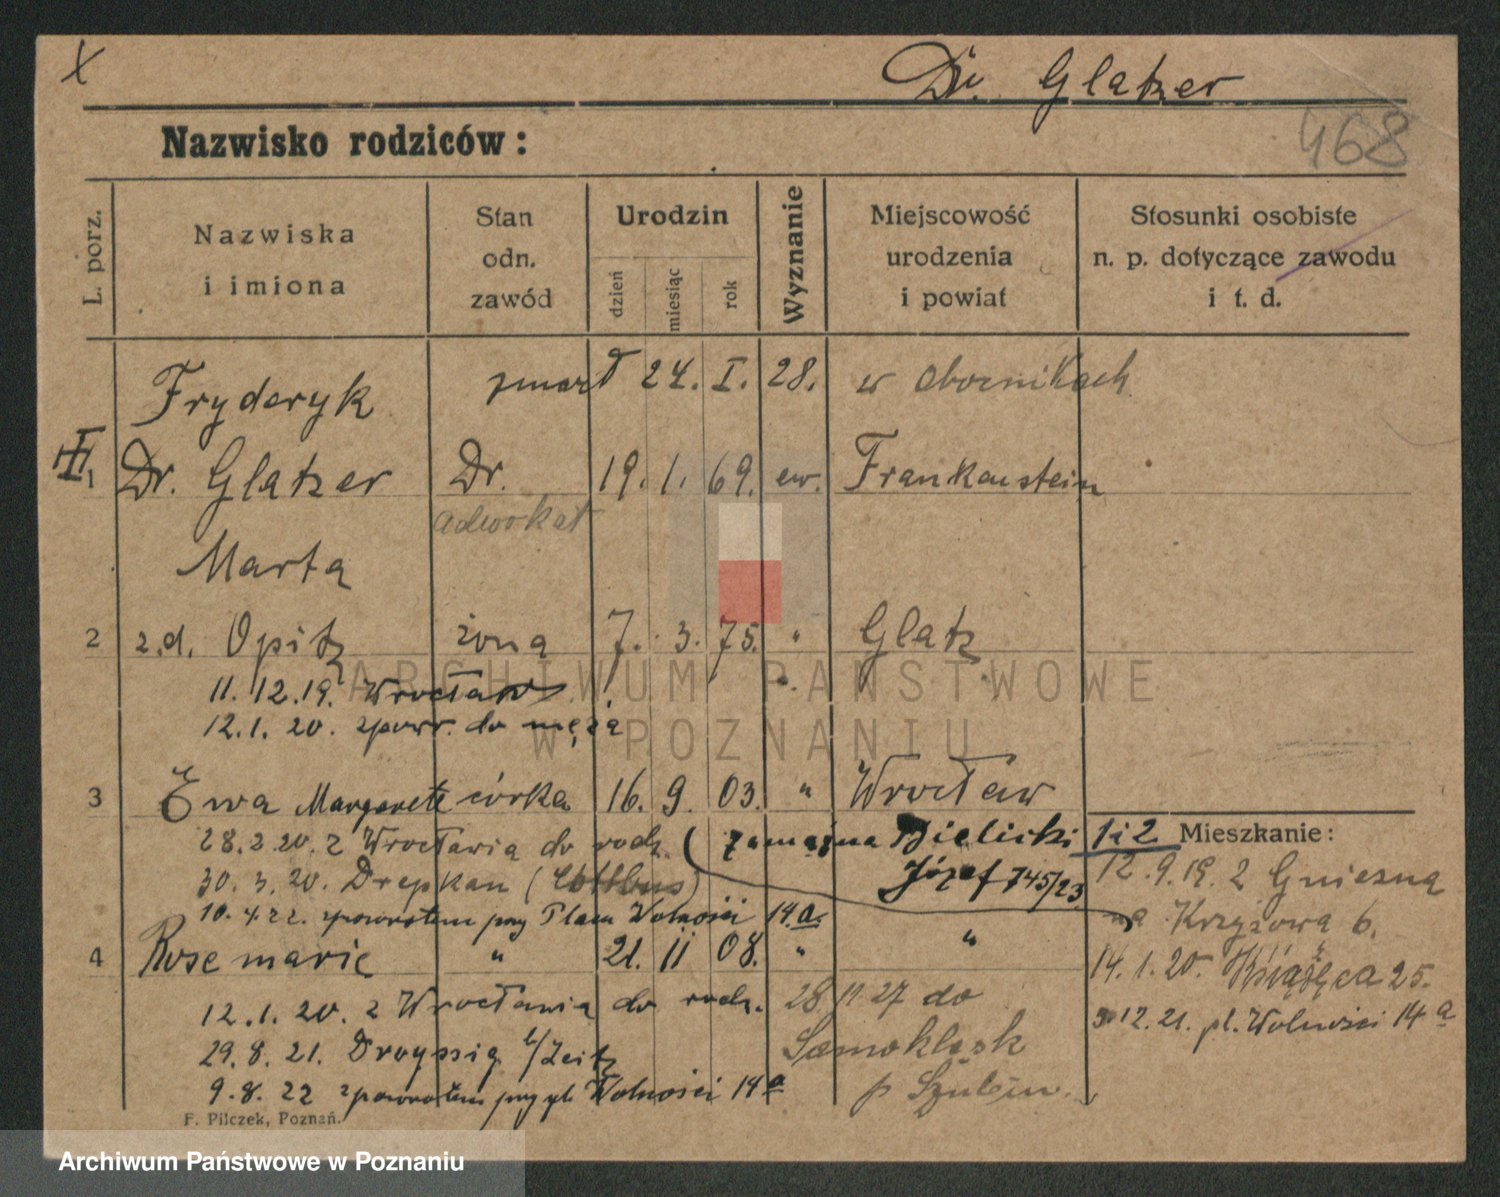 X
Dr. Glatzer
468
Nazwisko rodziców:
L. porz.
Nazwiska
i imiona
Stan
odn.
zawód
Urodzin
dzień
miesiąc
rok
Wyznanie
Miejscowość
urodzenia
i powiat
Stosunki osobiste
n. p. dotyczące zawodu
i t. d.
Fryderyk zmarł 24. I. 28. w Obornikach
1 Dr. Glatzer Dr. 19. 1. 69. ew. Frankenstein
adwokat
Marta
2 z.d. Opitz żona 7. 3. 75. " Glatz
11. 12. 19. Wrocław
12. 1. 20. zpowr. do męża
3 Ewa Margarete córka 16. 9. 03. " Wrocław
28. 2. 20. z Wrocławia do rodz. (zamężna Bielicki
Józef 745/23
30. 3. 20. Drepkau (Cottbus)
10. 4. 22. zpowrotem przy Placu Wolności 14a.
4 Rosemarie " 21. 11 08. " "
12. 1. 20. z Wrocławia do rodz. 28 11 27 do
Samoklęsk
p Szubin.
29. 8. 21. Droyssig b/Zeitz
9. 8. 22 zpowrotem przy pl. Wolności 14a
1 i 2 Mieszkanie:
12. 9. 19. z Gniezna
na Krzyżowa 6.
14. 1. 20. Książęca 25.
3. 12. 21. pl. Wolności 14a
F. Pilczek, Poznań.
ARCHIWUM PAŃSTWOWE
W POZNANIU
Archiwum Państwowe w Poznaniu